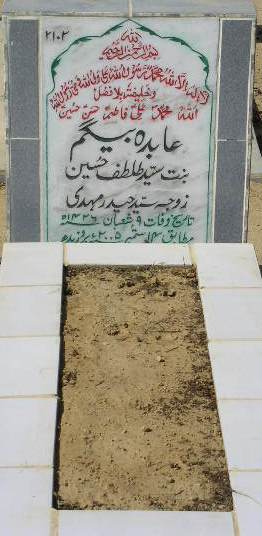 ۲۱۰۲
اللہ
بسم اللہ الرحمن الرحیم
لا الہ الا اللہ محمد رسول اللہ علی ولی اللہ وصی رسول اللہ
وخلیفتہ بلا فصل
اللہ محمد علی فاطمہ حسن حسین
عابدہ بیگم
بنت سید حسین
زوجہ سید حیدر مہدی
تاریخ وفات ۹ شعبان ۱۴۲۶ھ
مطابق ۱۴ ستمبر ۲۰۰۵ء بروز بدھ